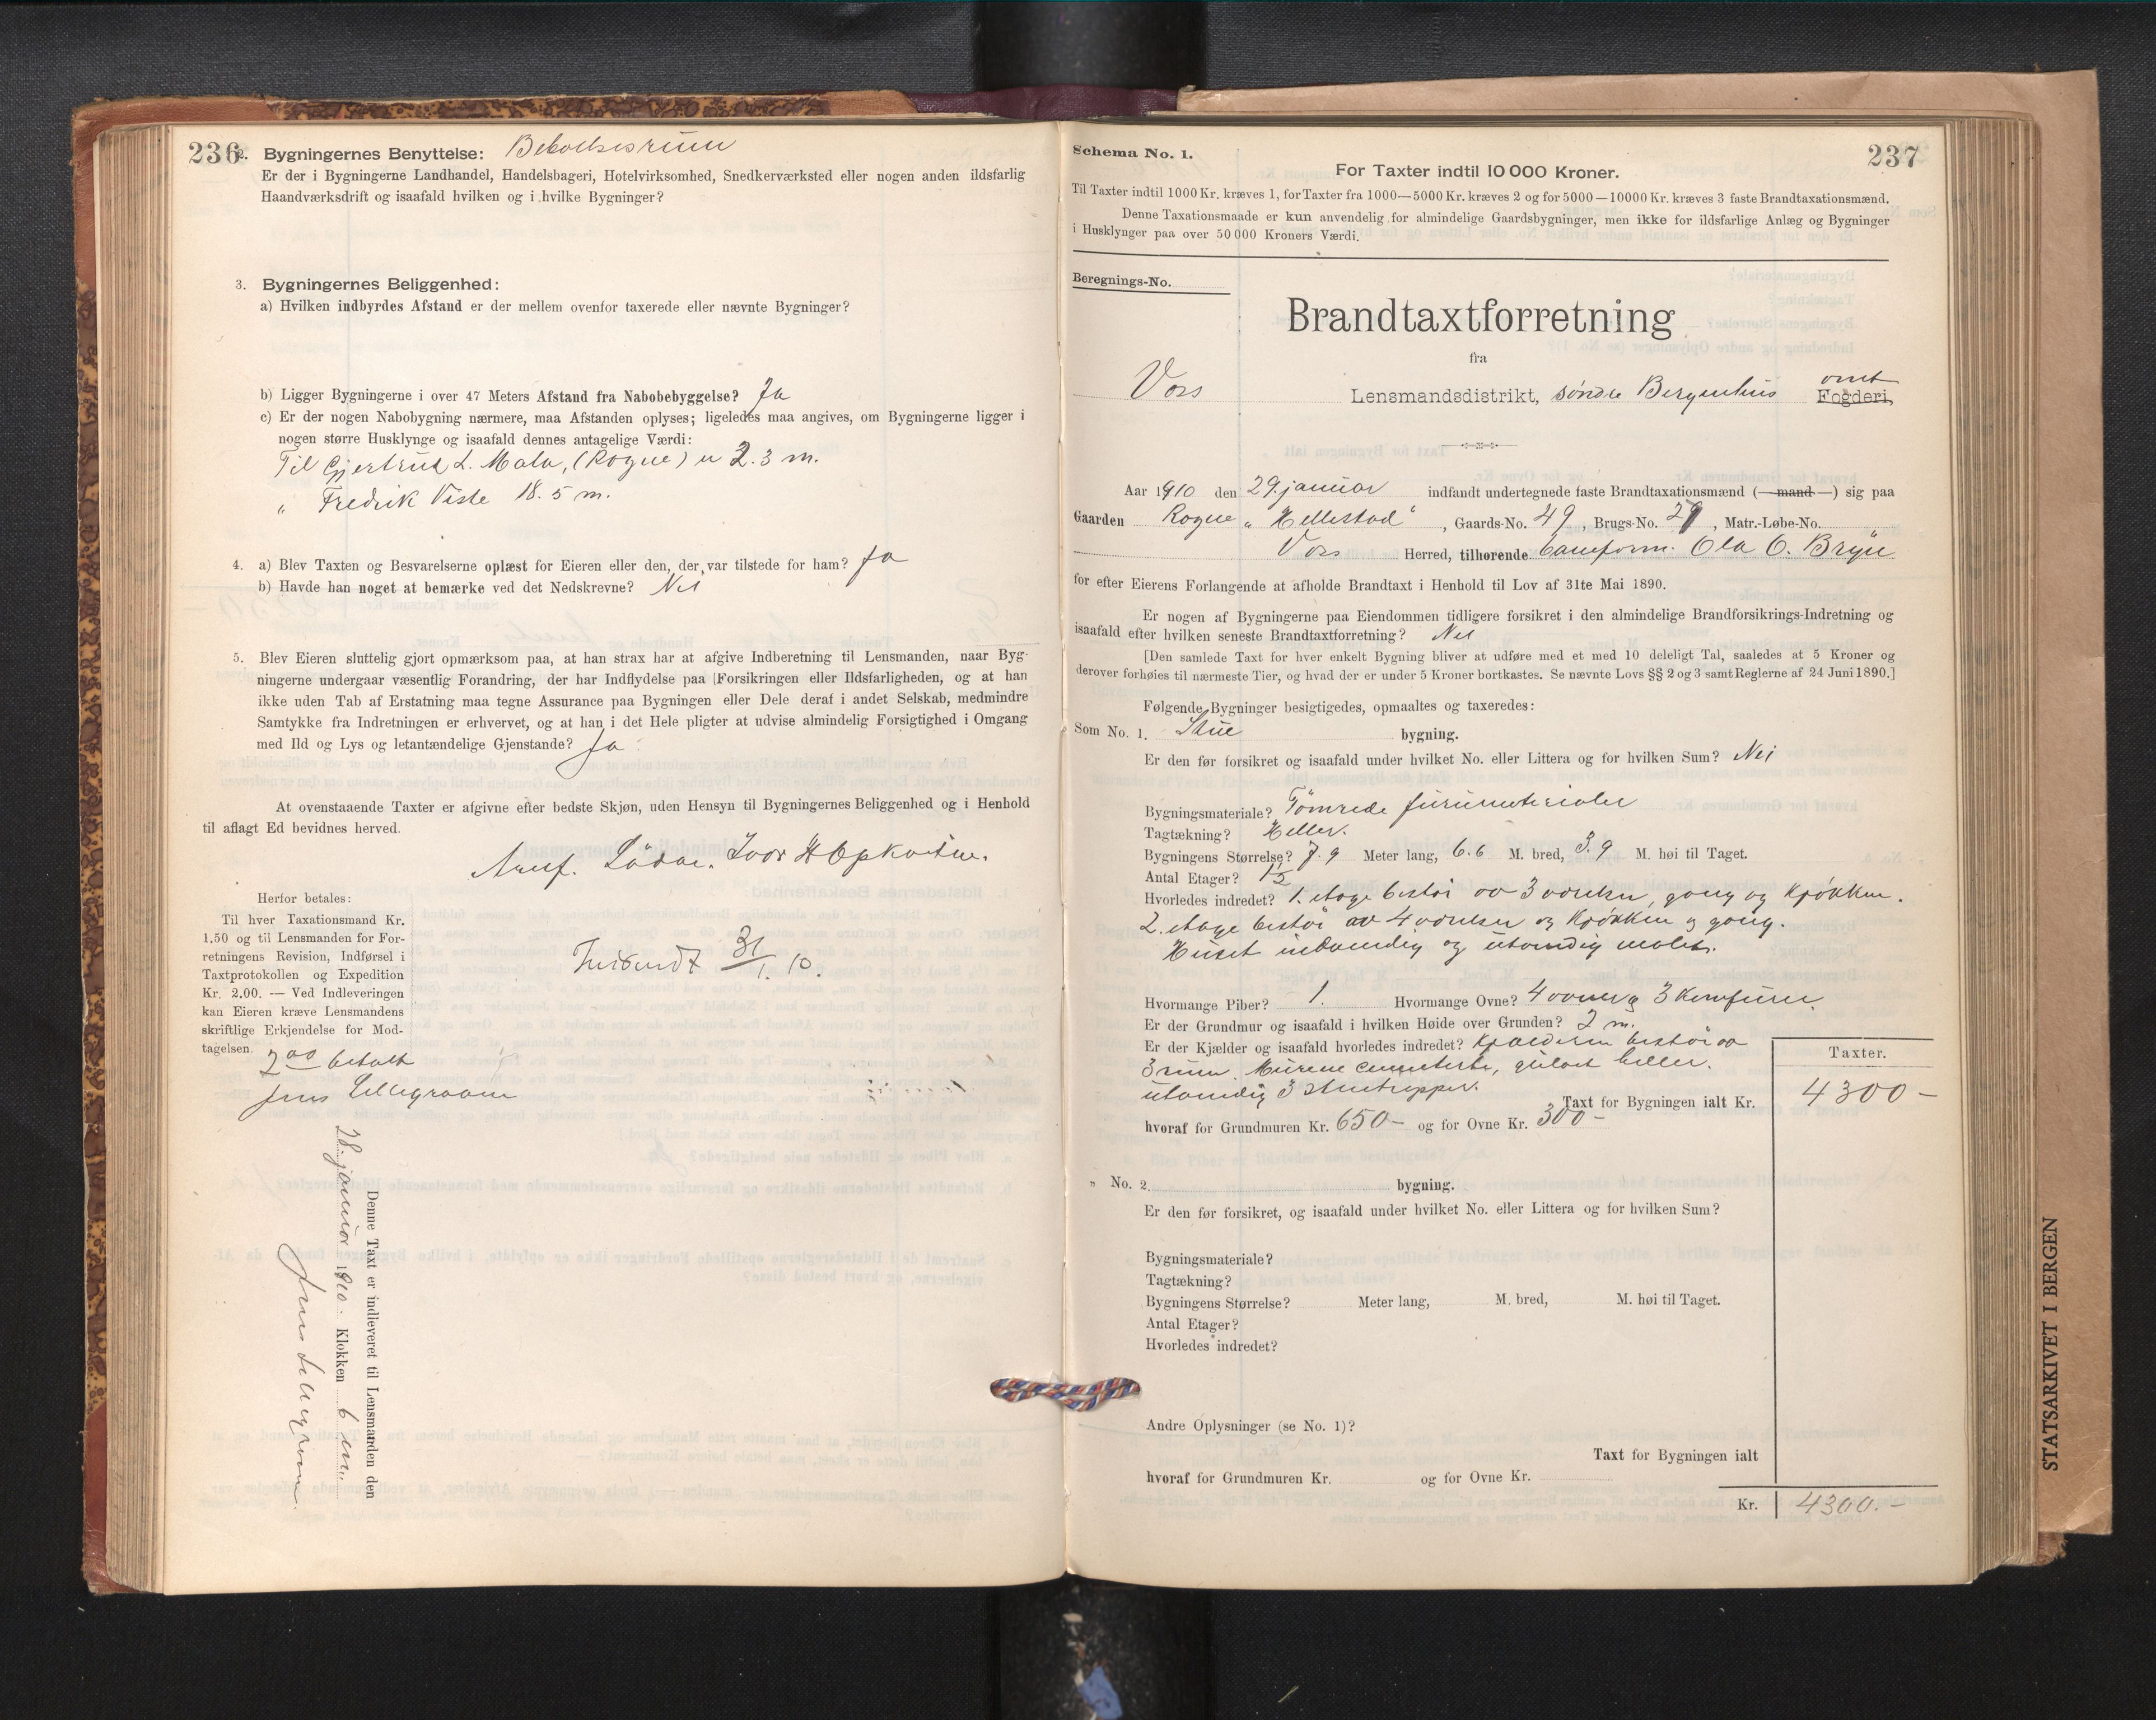 236
2. Bygningernes Benyttelse: Beboelsesrum
Er der i Bygningerne Landhandel, Handelsbageri, Hotelvirksomhed, Snedkerværksted eller nogen anden ildsfarlig
Haandværksdrift og isaafald hvilken og i hvilke Bygninger?
3. Bygningernes Beliggenhed:
a) Hvilken indbyrdes Afstand er der mellem ovenfor taxerede eller nævnte Bygninger?
b) Ligger Bygningerne i over 47 Meters Afstand fra Nabobebyggelse? Ja
c) Er der nogen Nabobygning nærmere, maa Afstanden oplyses; ligeledes maa angives, om Bygningerne ligger i
nogen større Husklynge og isaafald dennes antagelige Værdi:
Til Gjertrud L. (Rogne) 2.3 m.
„ Fredrik Viste 18.5 m.
4. a) Blev Taxten og Besvarelserne oplæst for Eieren eller den, der var tilstede for ham? Ja
b) Havde han noget at bemærke ved det Nedskrevne? Nei
5. Blev Eieren sluttelig gjort opmærksom paa, at han strax har at afgive Indberetning til Lensmanden, naar Byg-
ningerne undergaar væsentlig Forandring, der har Indflydelse paa Forsikringen eller Ildsfarligheden, og at han
ikke uden Tab af Erstatning maa tegne Assurance paa Bygningen eller Dele deraf i andet Selskab, medmindre
Samtykke fra Indretningen er erhvervet, og at han i det Hele pligter at udvise almindelig Forsigtighed i Omgang
med Ild og Lys og letantændelige Gjenstande? Ja
At ovenstaaende Taxter er afgivne efter bedste Skjøn, uden Hensyn til Bygningernes Beliggenhed og i Henhold
til aflagt Ed bevidnes herved.
Ivar H Opkvitne.
Herfor betales:
Til hver Taxationsmand Kr.
1.50 og til Lensmanden for For-
retningens Revision, Indførsel i
Taxtprotokollen og Expedition
Kr. 2.00. — Ved Indleveringen
kan Eieren kræve Lensmandens
skriftlige Erkjendelse for Mod-
tagelsen.
Indsendt 31/1. 10.
2 00 betalt
Jens Lillegraven
Denne Taxt er indleveret til Lensmanden den
28. januar 1910. Klokken 6 em.
Jens Lillegraven
237
Schema No. 1.
For Taxter indtil 10 000 Kroner.
Til Taxter indtil 1000 Kr. kræves 1, for Taxter fra 1000—5000 Kr. kræves 2 og for 5000—10000 Kr. kræves 3 faste Brandtaxationsmænd.
Denne Taxationsmaade er kun anvendelig for almindelige Gaardsbygninger, men ikke for ildsfarlige Anlæg og Bygninger
i Husklynger paa over 50 000 Kroners Værdi.
Beregnings-No.
Brandtaxtforretning
fra
Voss Lensmandsdistrikt, søndre Bergenhus amt Fogderi
Aar 1910 den 29. januar indfandt undertegnede faste Brandtaxationsmænd (— mand —) sig paa
Gaarden Rogne „Hellestad“, Gaards-No. 49, Brugs-No. 29, Matr.-Løbe-No.
Voss Herred, tilhørende Ola O. Bryn
for efter Eierens Forlangende at afholde Brandtaxt i Henhold til Lov af 31te Mai 1890.
Er nogen af Bygningerne paa Eiendommen tidligere forsikret i den almindelige Brandforsikrings-Indretning og
isaafald efter hvilken seneste Brandtaxtforretning? Nei
[Den samlede Taxt for hver enkelt Bygning bliver at udføre med et med 10 deleligt Tal, saaledes at 5 Kroner og
derover forhøies til nærmeste Tier, og hvad der er under 5 Kroner bortkastes. Se nævnte Lovs §§ 2 og 3 samt Reglerne af 24 Juni 1890.]
Følgende Bygninger besigtigedes, opmaaltes og taxeredes:
Som No. 1. Stue bygning.
Er den før forsikret og isaafald under hvilket No. eller Littera og for hvilken Sum? Nei
Bygningsmateriale? Tømrede furumaterialer
Tagtækning? Heller.
Bygningens Størrelse? 7.9 Meter lang, 6.6 M. bred, 3.9 M. høi til Taget.
Antal Etager? 1½
Hvorledes indredet? 1. etage består av 3 værelser, gang og kjøkken.
2. etage består av 4 værelser og kjøkken og gang.
Huset indvendig og utvendig malet.
Hvormange Piber? 1. Hvormange Ovne? 4 ovner og 3 komfurer.
Er der Grundmur og isaafald i hvilken Høide over Grunden? 2 m.
Er der Kjælder og isaafald hvorledes indredet? Kjælderen består av
3 rum. Murene cementerte, gulvet heller.
utvendig 3 stentrapper.
Taxter.
Taxt for Bygningen ialt Kr. 4300 –
hvoraf for Grundmuren Kr. 650 – og for Ovne Kr. 300 –
„ No. 2. bygning.
Er den før forsikret, og isaafald under hvilket No. eller Littera og for hvilken Sum?
Bygningsmateriale?
Tagtækning?
Bygningens Størrelse? Meter lang, M. bred, M. høi til Taget.
Antal Etager?
Hvorledes indredet?
Andre Oplysninger (se No. 1)?
Taxt for Bygningen ialt
hvoraf for Grundmuren Kr. og for Ovne Kr.
Kr. 4300. –
STATSARKIVET I BERGEN